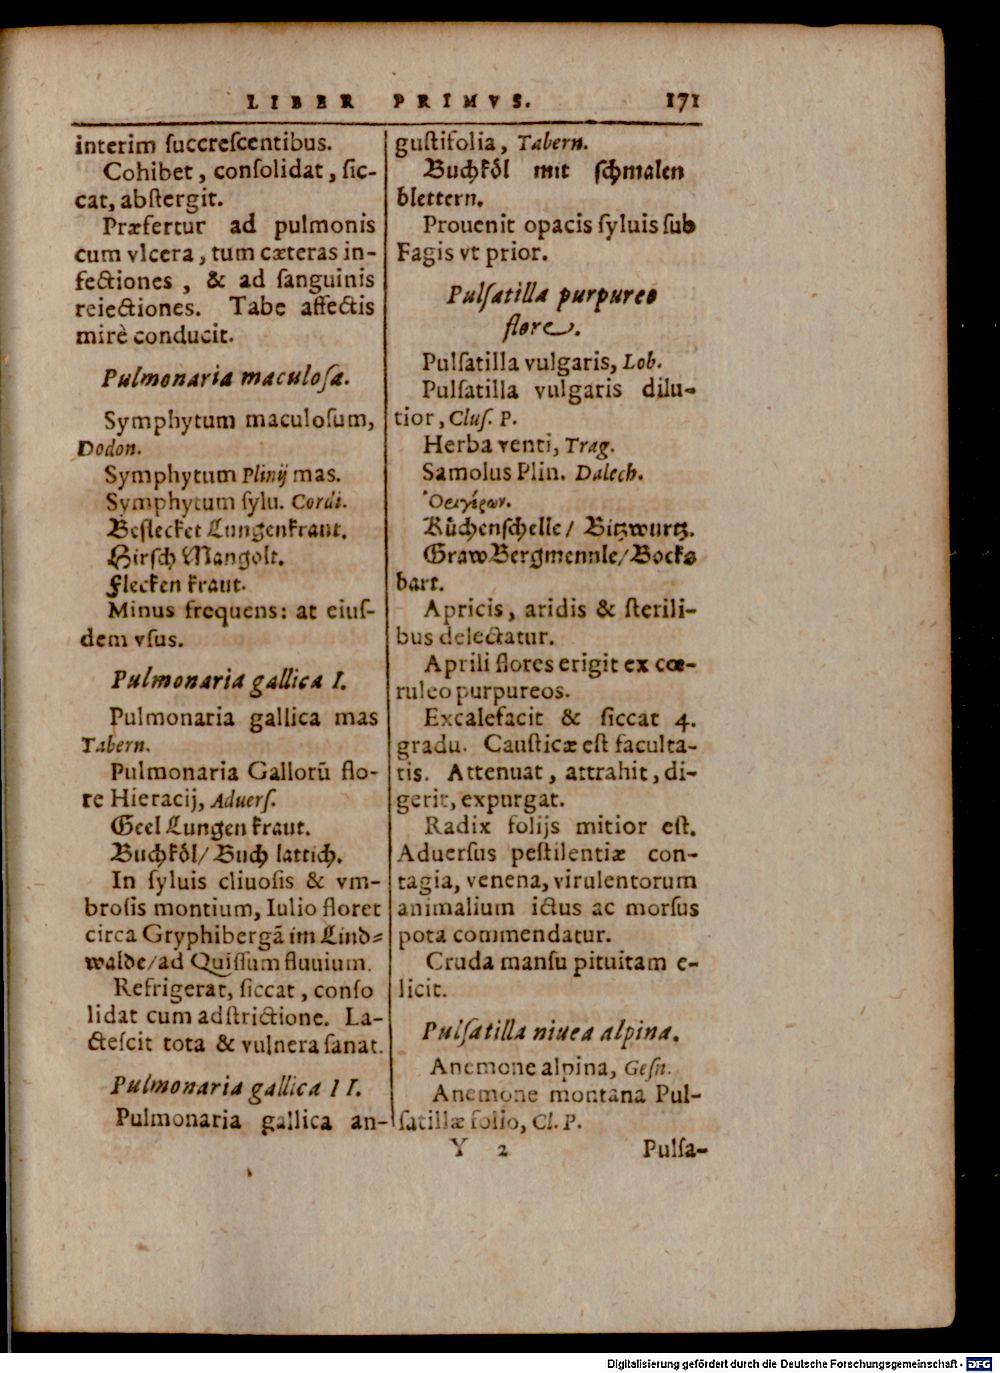 LIBER PRIMVS. 171
interim ſuccreſcentibus.
Cohibet, conſolidat, ſic-
cat, abſtergit.
Præfertur ad pulmonis
cum vlcera, tum cæteras in-
fectiones, & ad ſanguinis
reiectiones. Tabe affectis
mirè conducit.
Pulmonaria maculoſa.
Symphytum maculoſum,
Dodon.
Symphytum Plinij mas.
Symphytum ſylu. Cordi.
Beflecket Lungenkraut.
Hirſch Mangolt.
Flecken kraut.
Minus frequens: at eiuſ-
dem vſus.
Pulmonaria gallica I.
Pulmonaria gallica mas
Tabern.
Pulmonaria Gallorū flo-
re Hieracij, Aduerſ.
Geel Lungen kraut.
Buchkôl/ Buch lattich.
In ſyluis cliuoſis & vm-
broſis montium, Iulio floret
circa Gryphibergā im Lind-
walde/ ad Quiſſum fluuium.
Refrigerat, ſiccat, conſo
lidat cum adſtrictione. La-
cteſcit tota & vulnera ſanat.
Pulmonaria gallica II.
Pulmonaria gallica an-
guſtifolia, Tabern.
Buchkôl mit ſchmalen
blettern.
Prouenit opacis ſyluis ſub
Fagis vt prior.
Pulſatilla purpureo
flore.
Pulſatilla vulgaris, Lob.
Pulſatilla vulgaris dilu-
tior, Cluſ. P.
Herba venti, Trag.
Samolus Plin. Dalech.
Kůchenſchelle/ Bitzwurtz.
Graw Bergmennle/ Bocks
bart.
Apricis, aridis & ſterili-
bus delectatur.
Aprili flores erigit ex cœ-
ruleo purpureos.
Excalefacit & ſiccat 4.
gradu. Cauſticæ eſt faculta-
tis. Attenuat, attrahit, di-
gerit, expurgat.
Radix folijs mitior eſt.
Aduerſus peſtilentiæ con-
tagia, venena, virulentorum
animalium ictus ac morſus
pota commendatur.
Cruda manſu pituitam e-
licit.
Pulſatilla niuea alpina.
Anemone alpina, Geſn.
Anemone montana Pul-
ſatillæ folio, Cl. P.
Y 2 Pulſa-
Digitalisierung gefördert durch die Deutsche Forschungsgemeinschaft - DFG